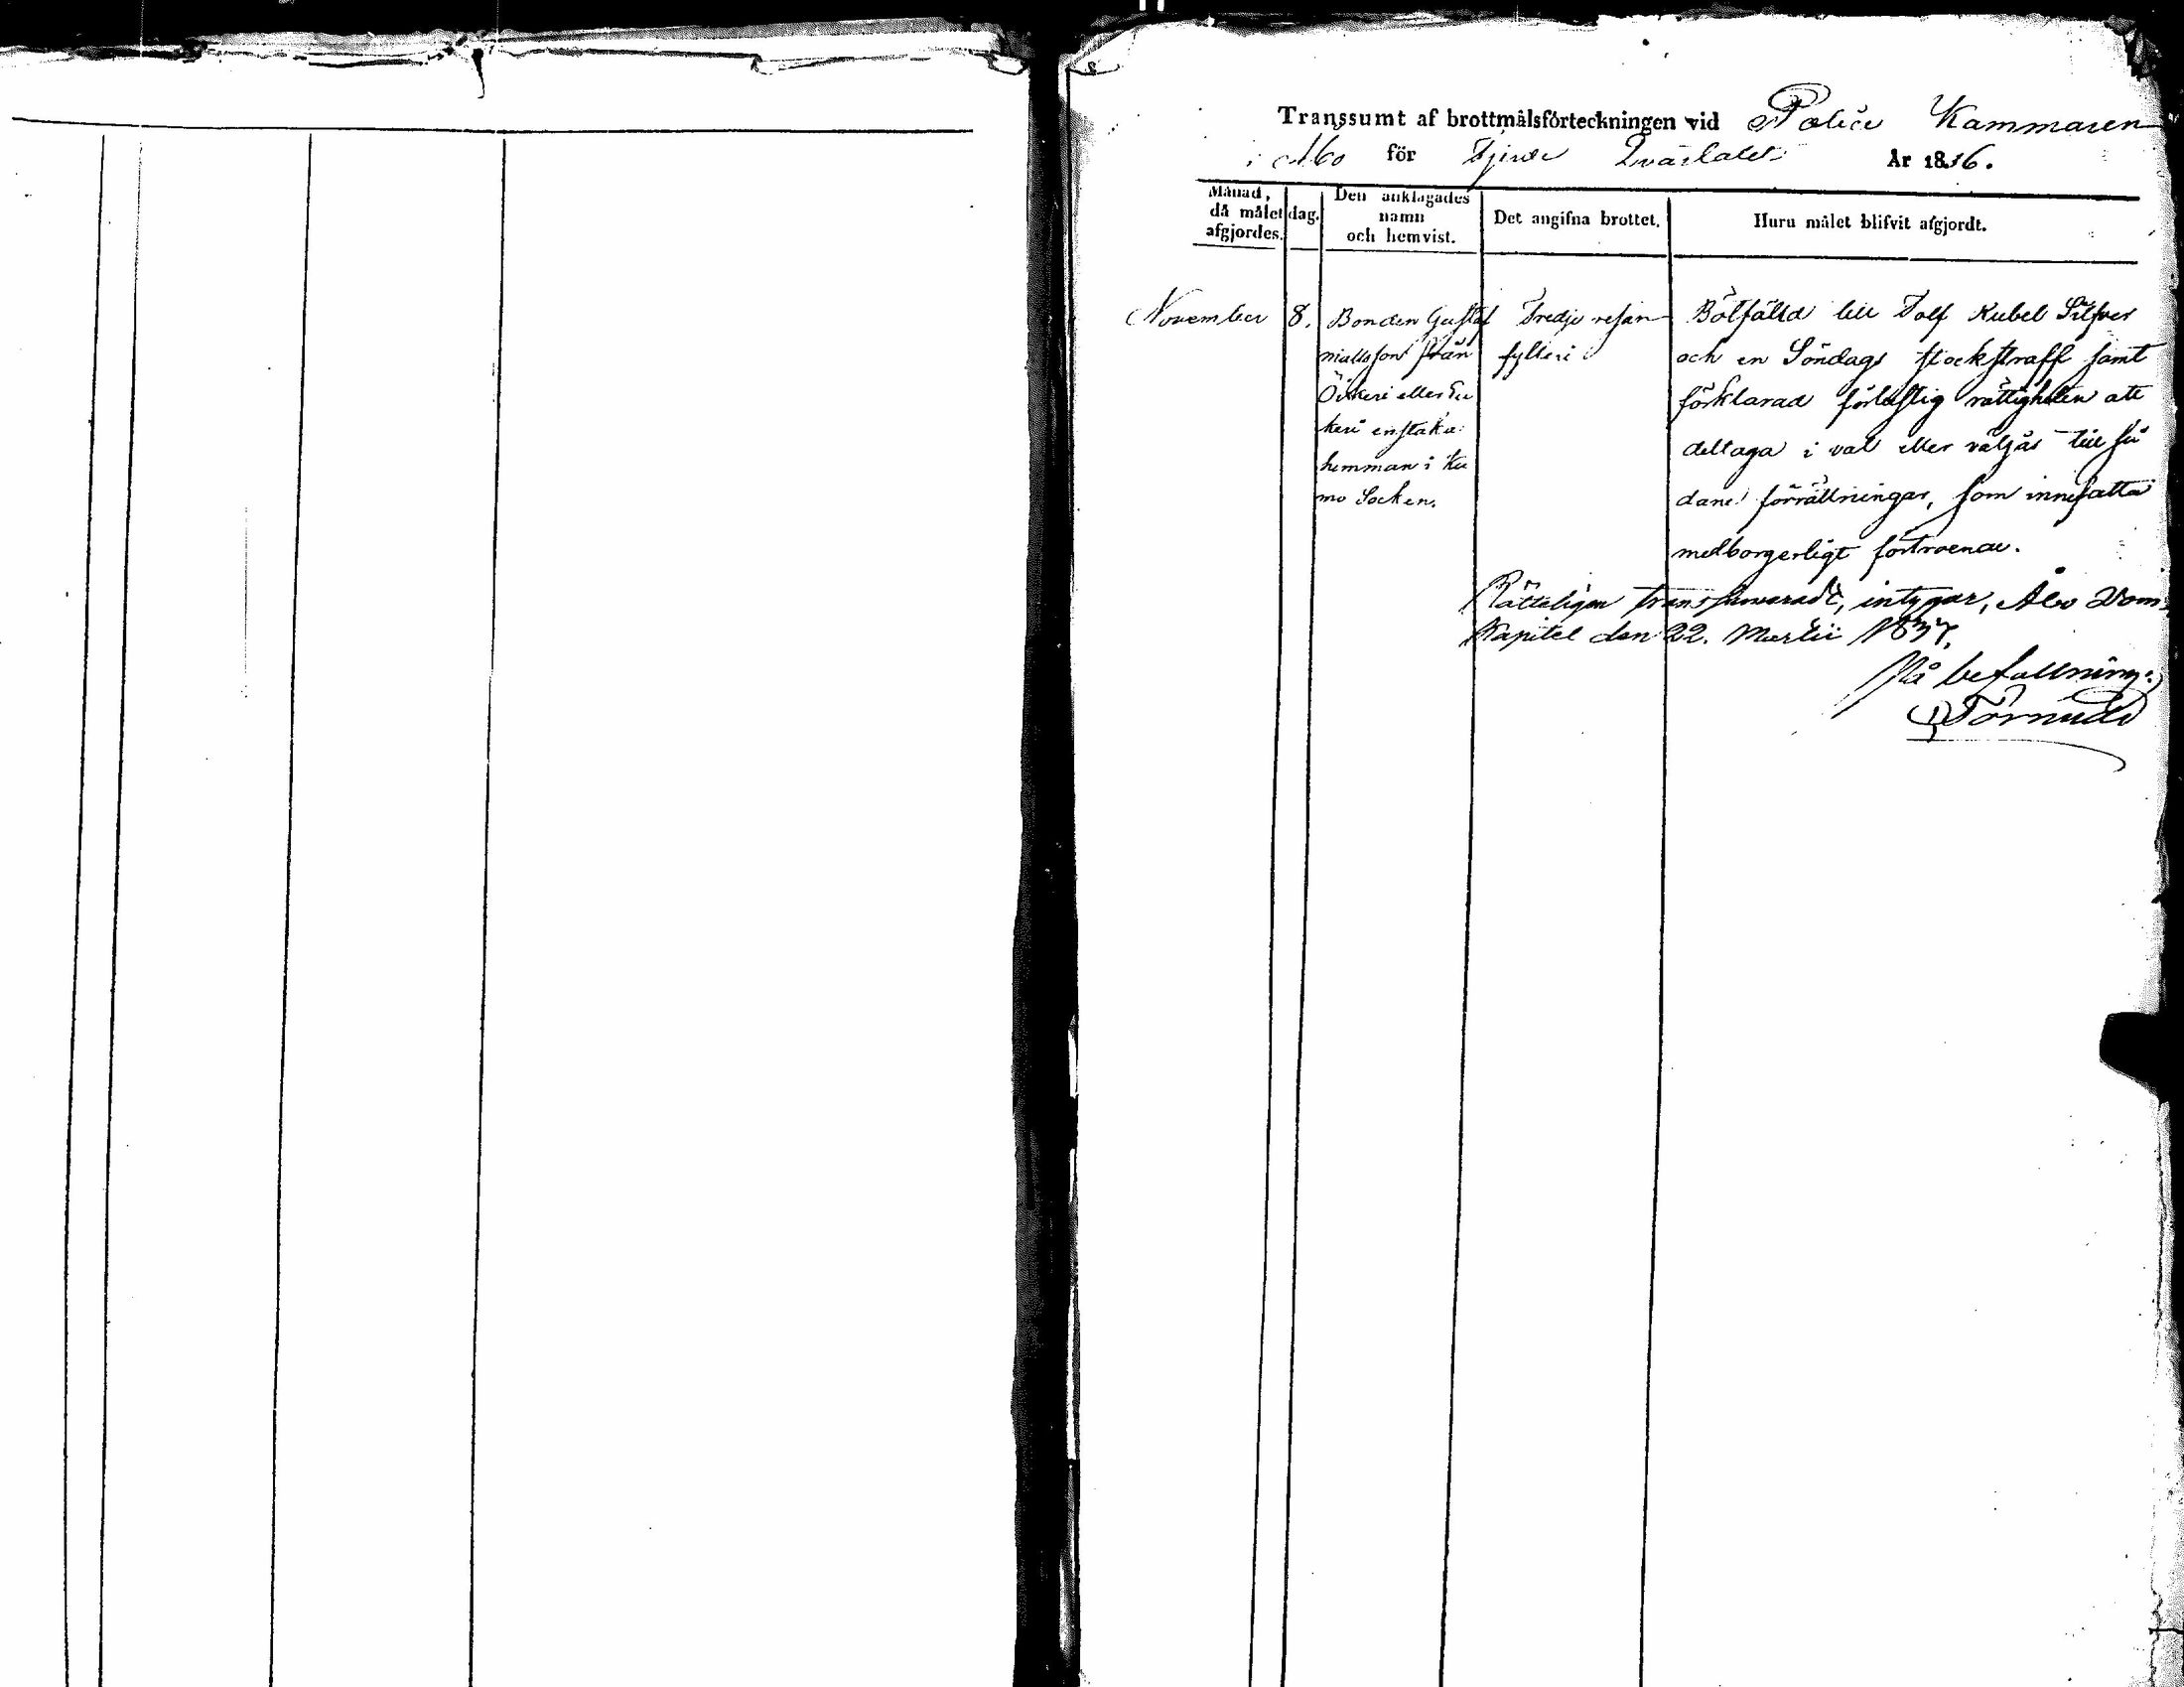 Transsumt af brottmålsförteckningen vid Police Kammaren
i Åbo för Fjerde Qvartalet År 1836.
Månad, då målet afgjordes. dag. Den anklagades namn och hemvist. Det angifna brottet. Huru målet blifvit afgjordt.
November 8. Bonden Gustaf Tredje resan Bötfälld till Tolf Rubel Silfver
från fylleri och en Söndags stockstraff samt
eller förklarad förlustig rättigheten att
enstaka deltaga i val eller väljas till så
hemman i Ku dane förrättningar, som innefatta
mo Socken. medborgerligt förtroende.
Rätteligen transsumeradt, intygar, Åbo Dom
Kapitel den 22. Martii 1837.
På befallning:
Törnudd